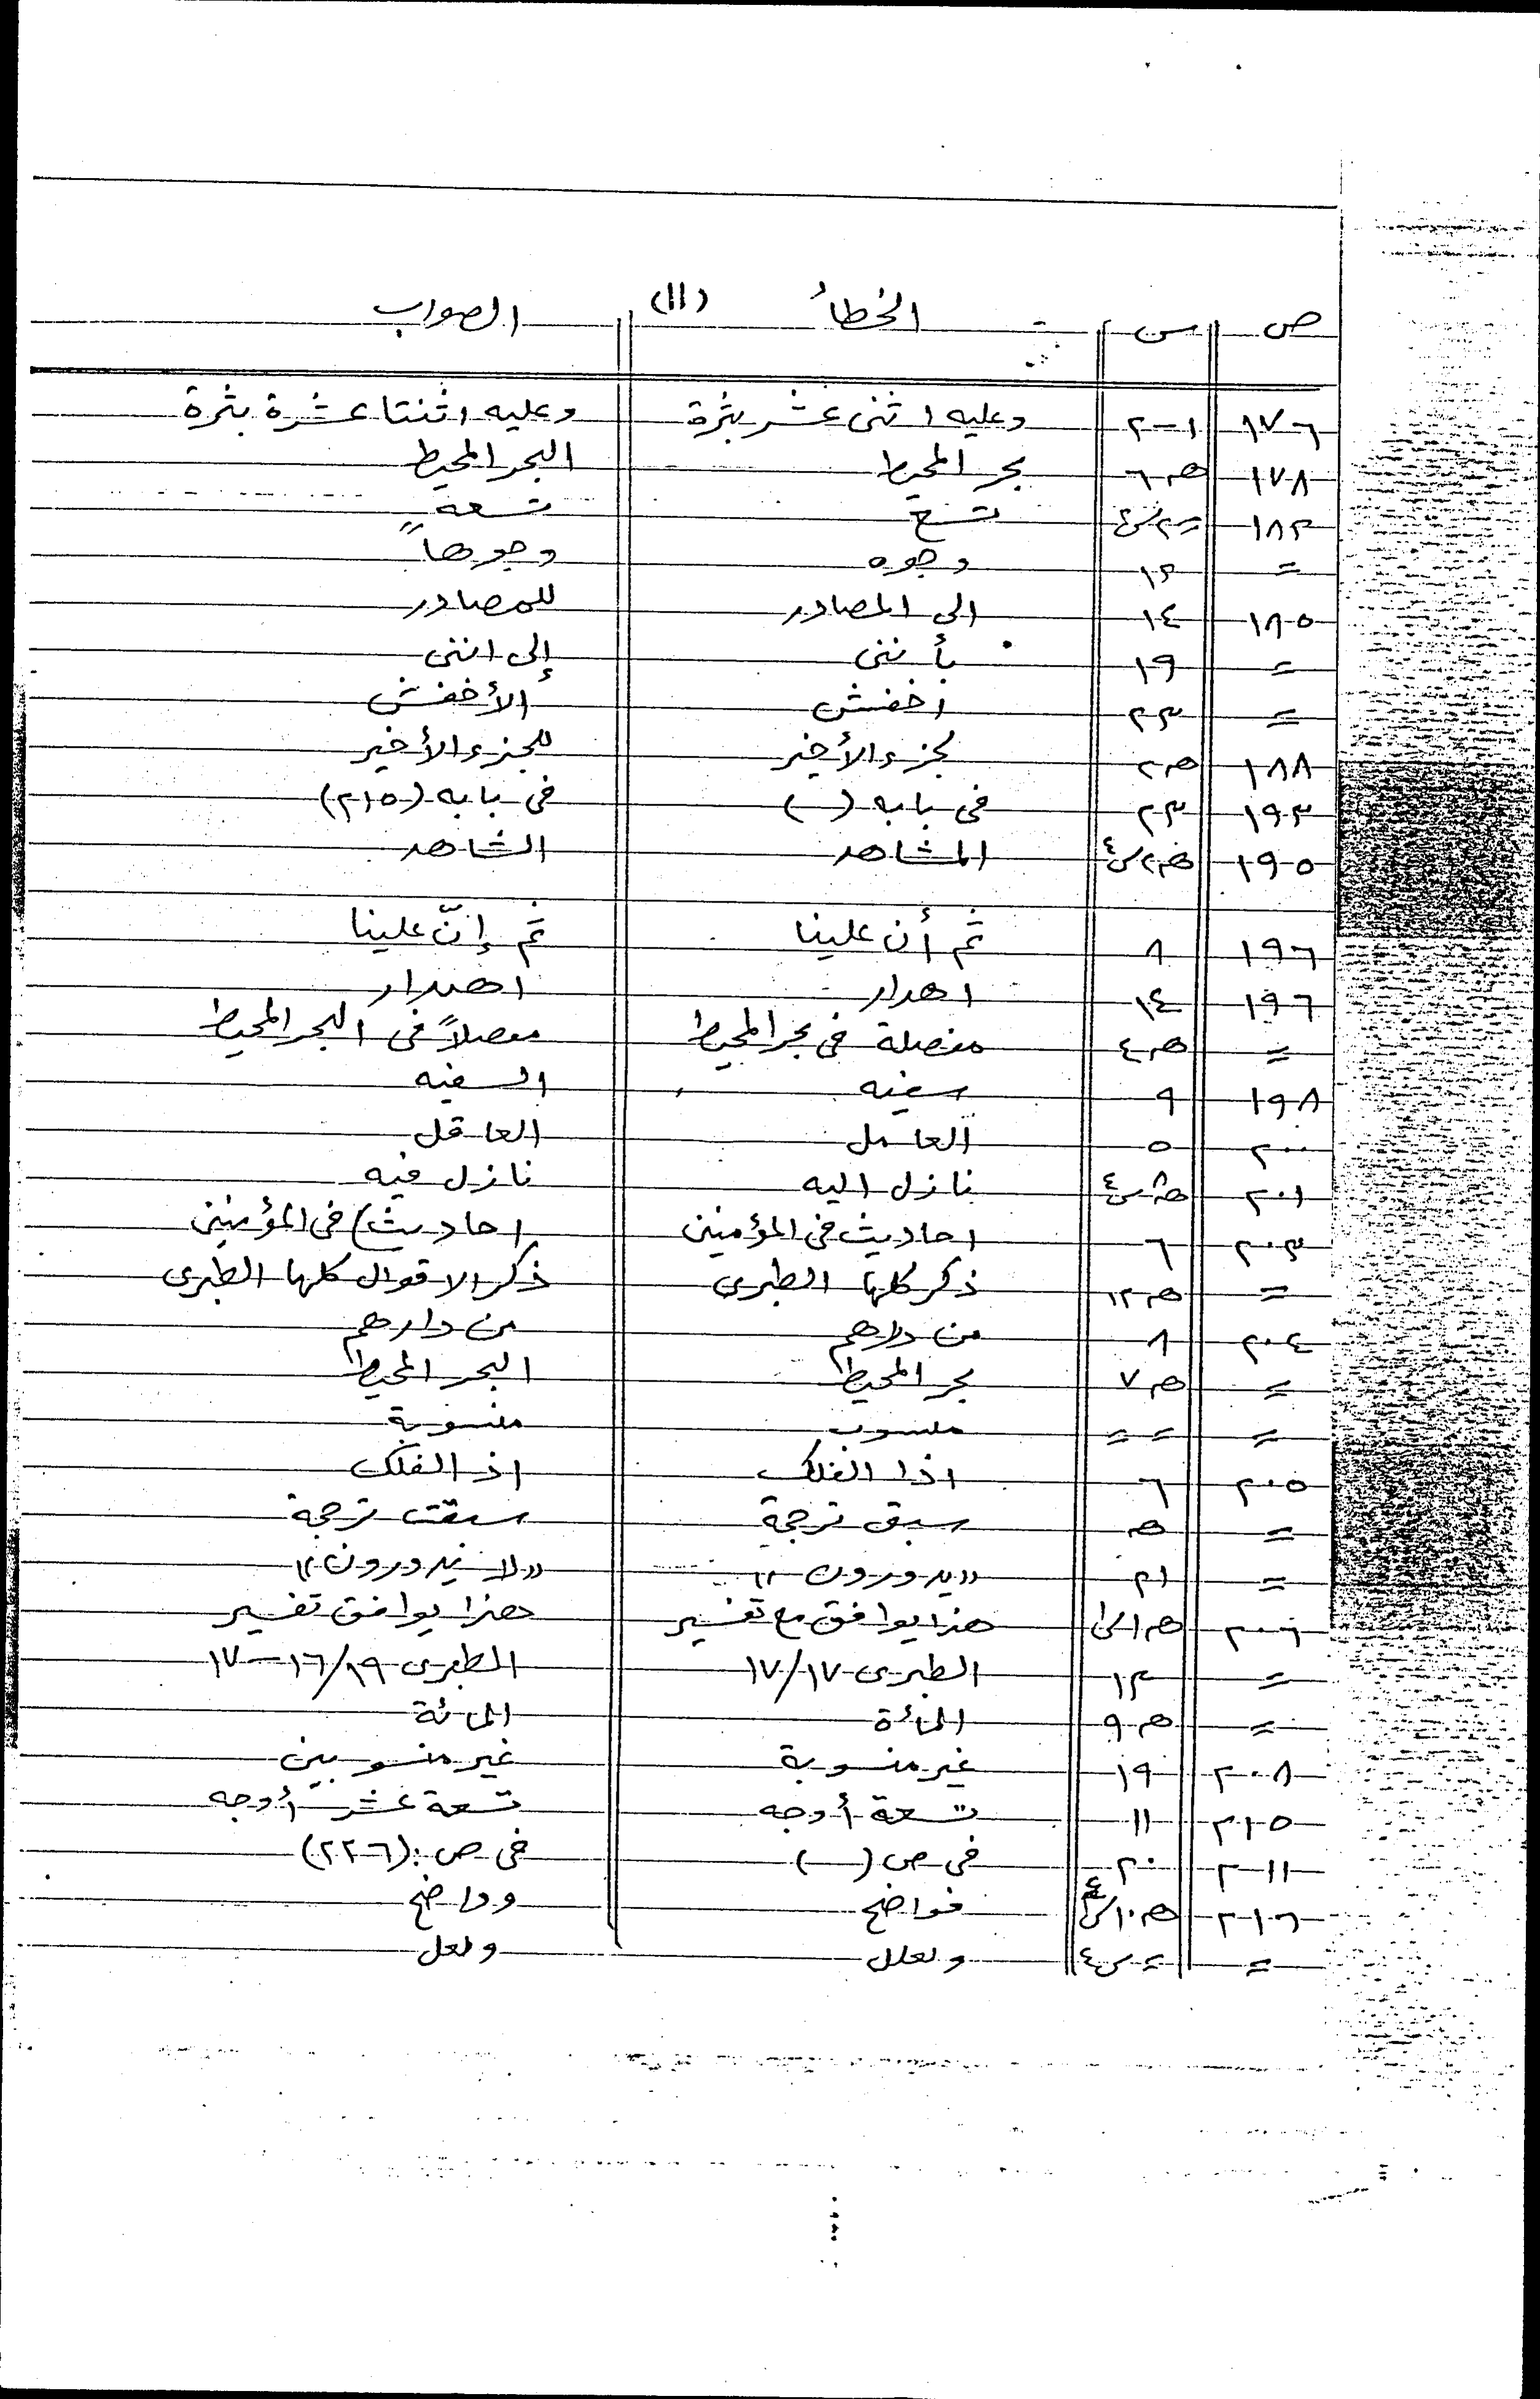 (١١)
ص س الخطأ الصواب
١٧٦ ١-٢ وعليه اثنى عشر بثرة وعليه اثنتا عشرة بثرة
١٧٨ هـ٦ بحر المحيط البحر المحيط
١٨٣ تسع تسعة
= ١٢ وجوه وجوهاً
١٨٥ ١٤ الى المصادر للمصادر
= ١٩ بأننى إلى اننى
= ٢٣ اخفش الأخفش
١٨٨ هـ٢ لجزء الأخير للجزء الأخير
١٩٣ ٢٣ فى بابه ( ) فى بابه (٢١٥)
١٩٥ هـ٢ س٤ المشاهد الشاهد
١٩٦ ٨ ثم أن علينا ثم إنّ علينا
١٩٦ ١٤ اهدار اهدار
= هـ٤ مفصلة فى بحر المحيط مفصلاً فى البحر المحيط
١٩٨ ٩ سفيه السفيه
٢٠٠ ٥ العامل العاقل
٢٠١ س٤ نازل اليه نازل فيه
٢٠٣ ٦ احاديث فى المؤمنين احاديث) فى المؤمنين
= هـ١٢ ذكر كلها الطبرى ذكر الاقوال كلها الطبرى
٢٠٤ ٨ من دلاهم من دارهم
= هـ٧ بحر المحيط البحر المحيط
= = = منسوب منسوبة
٢٠٥ ٦ اذا الفلك اذ الفلك
= هـ سبق ترجمة سبقت ترجمة
= ٢١ «يدورون» «لا يدورون»
٢٠٦ هـ١ س١ هذا يوافق مع تفسير هذا يوافق تفسير
= ١٣ الطبرى ١٧/١٧ الطبرى ١٦/١٩-١٧
= هـ٩ المائة
٢٠٨ ١٩ غير منسوبة غير منسوبين
٢١٥ ١١ تسعة أوجه تسعة عشر أوجه
٢١١ ٢٠ فى ص ( ) فى ص: (٢٢٦)
٢١٦ هـ١٠ س٤ فواضح وواضح
= = س٤ ولعلل ولعل